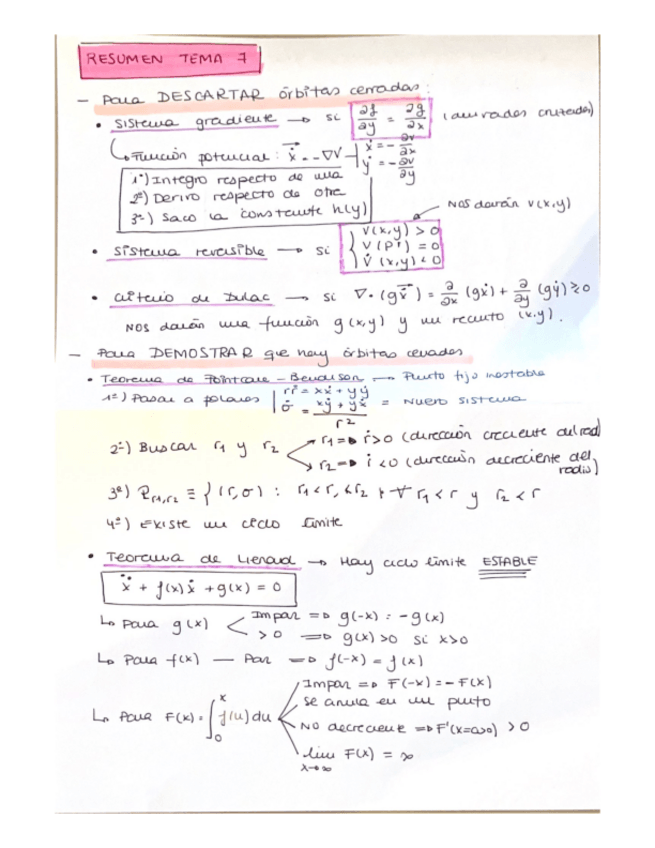 RESUMEN TEMA 7
- Para DESCARTAR órbitas cerradas:
• Sistema gradiente → si ∂f/∂y = ∂g/∂x (derivadas cruzadas)
↳ Función potencial: ẋ = -∇V { ẋ = -∂V/∂x
ẏ = -∂V/∂y
1º) Integro respecto de una
2º) Derivo respecto de otra
3º) Saco la constante h(y)
NOS darán V(x,y)
• Sistema reversible → si { V(x,y) > 0
V(P*) = 0
V̇(x,y) < 0
• Criterio de Dulac → si ∇·(gẋ) = ∂/∂x (gẋ) + ∂/∂y (gẏ) ≥ 0
NOS darán una función g(x,y) y un recinto (x,y).
- Para DEMOSTRAR que hay órbitas cerradas
• Teorema de Poincare - Bendixson → Punto fijo inestable
1º) Pasar a polares | rṙ = xẋ + yẏ
σ̇ = (xẏ + yẋ)/r² = Nuevo sistema
2º) Buscar r1 y r2
r1 ⇒ ṙ>0 (dirección creciente del rad)
r2 ⇒ ṙ<0 (dirección decreciente del radio)
3º) Rr1,r2 ≡ { (r,σ) : r1<r
y r2 < r
4º) Existe un ciclo límite
• Teorema de Lienard → Hay ciclo límite ESTABLE
ẍ + f(x)ẋ + g(x) = 0
↳ Para g(x)
Impar ⇒ g(-x) = -g(x)
>0 ⇒ g(x)>0 si x>0
↳ Para f(x) — Par ⇒ f(-x) = f(x)
↳ Para F(x) = ∫₀ˣ f(u)du
Impar ⇒ F(-x) = -F(x)
Se anula en un punto
NO decreciente ⇒ F'(x=a>0) > 0
lim x→∞ F(x) = ∞